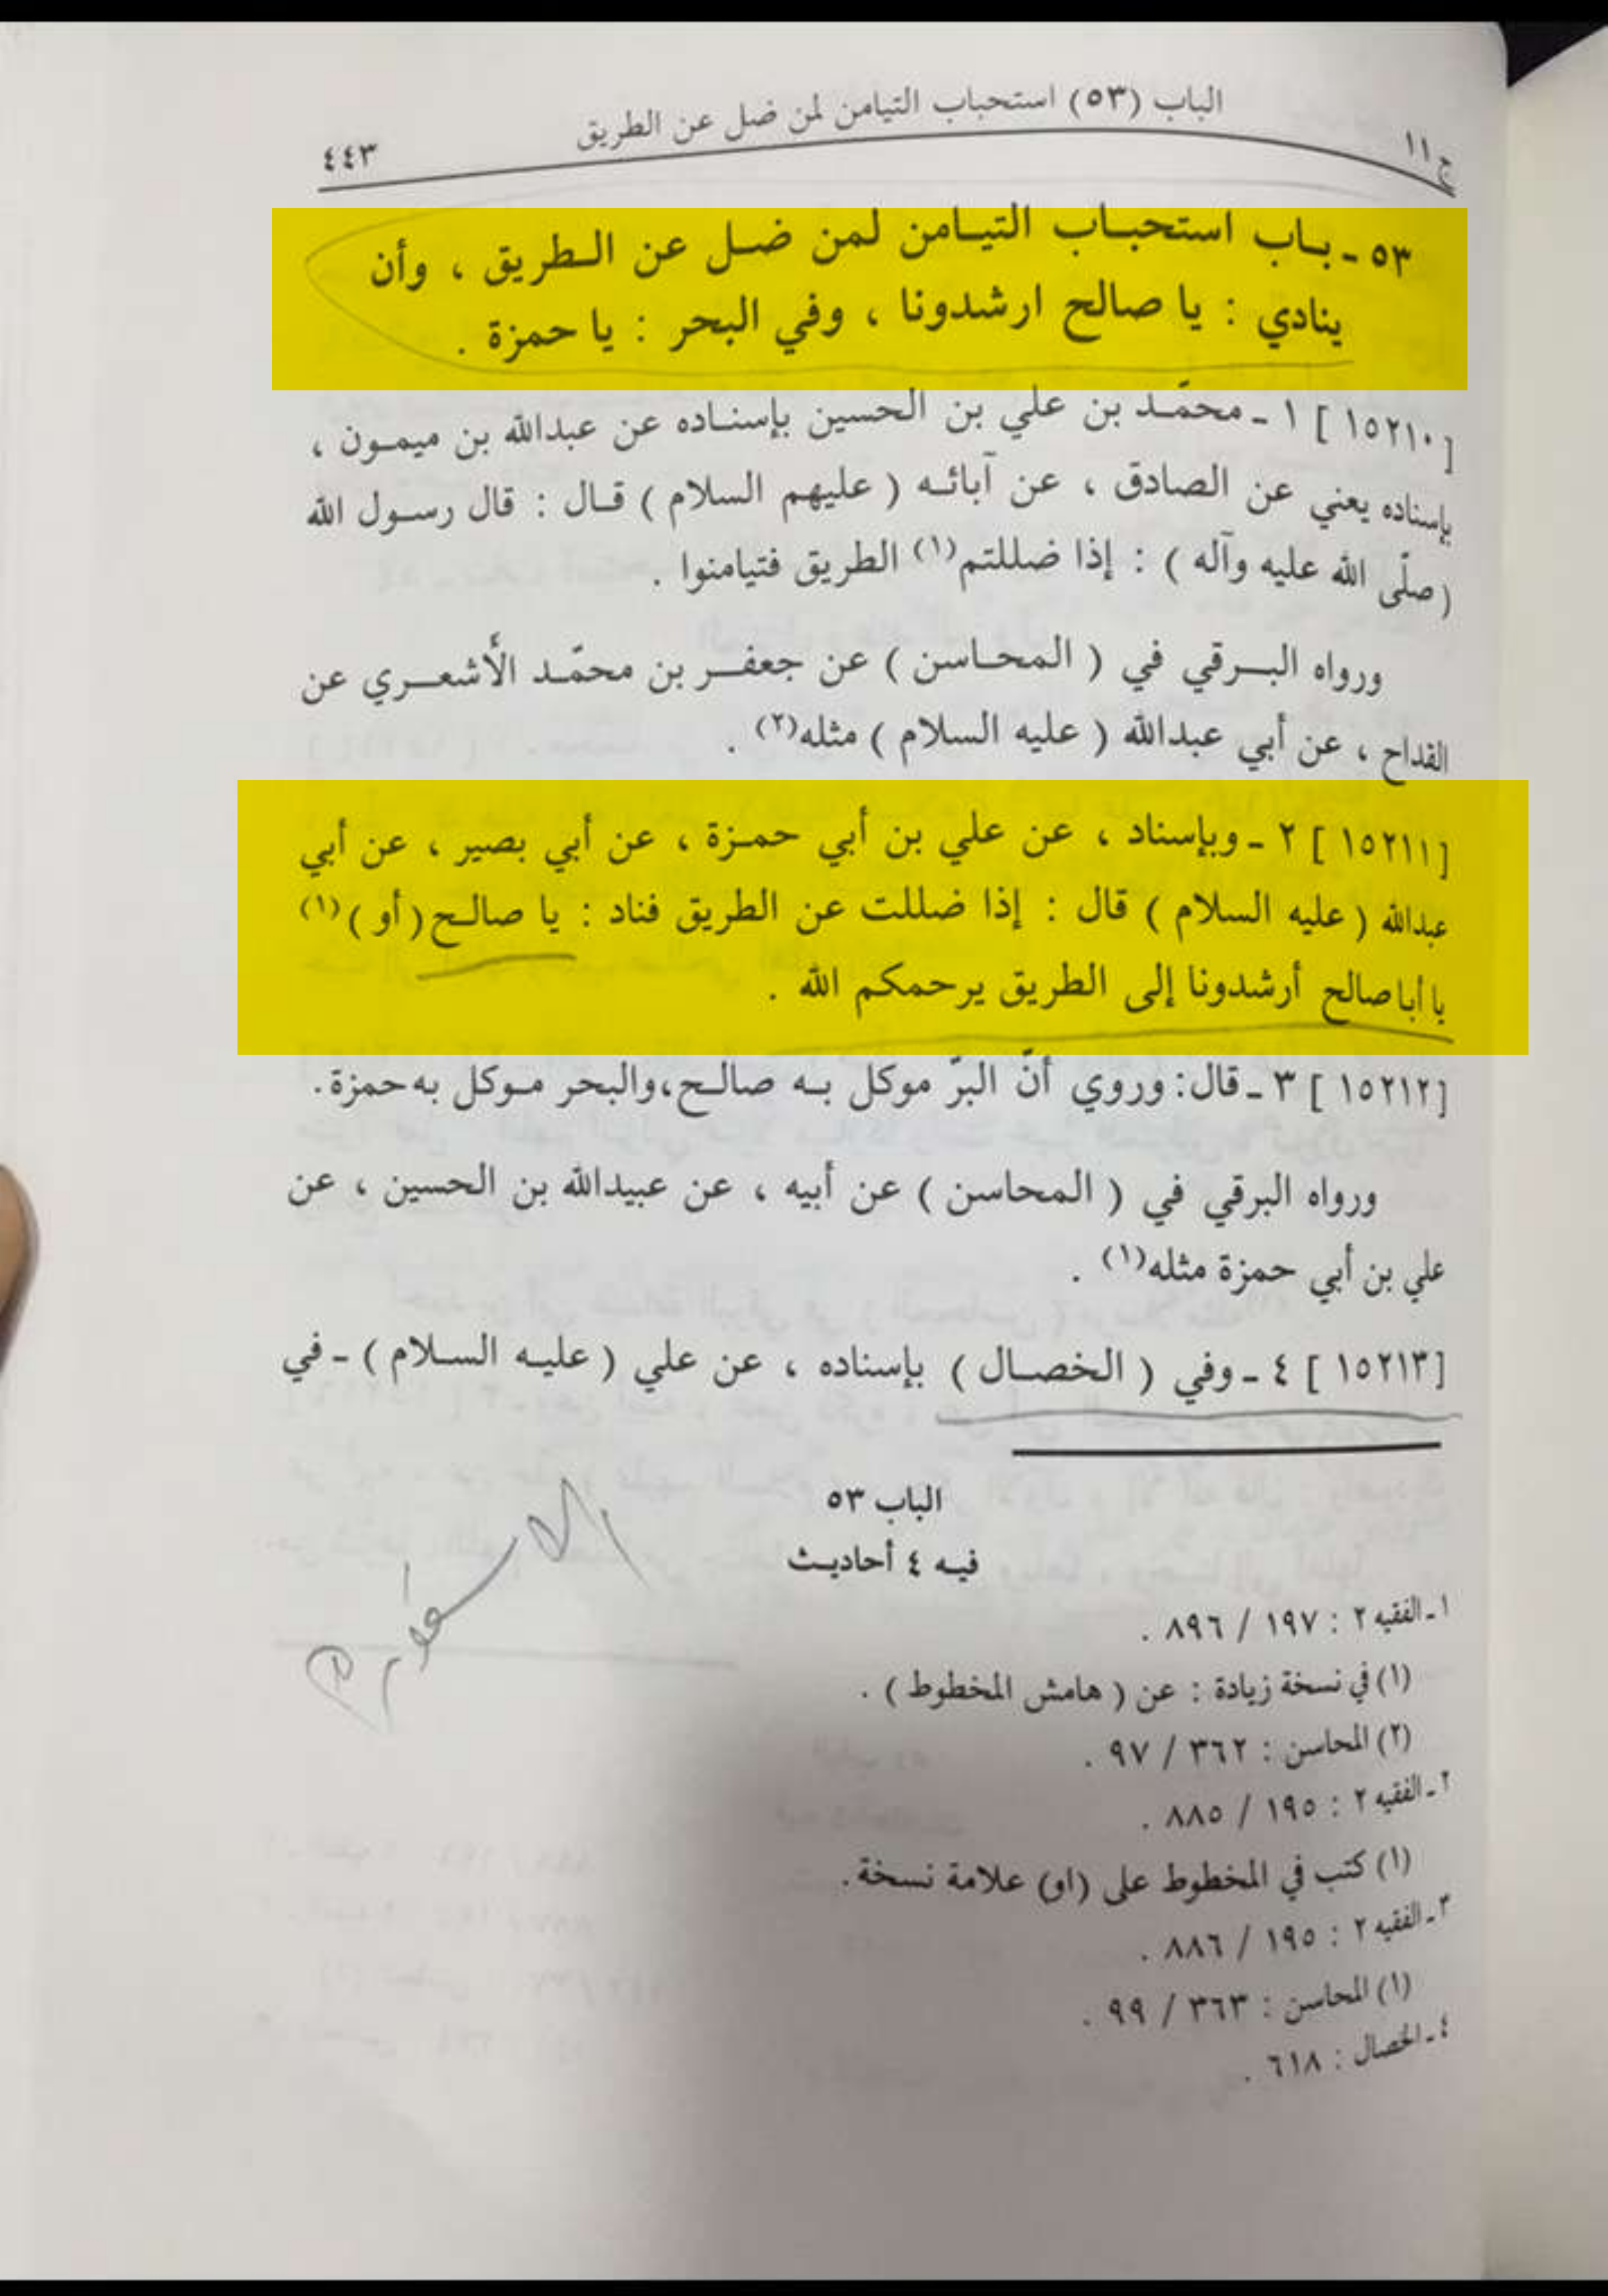 الباب (٥٣) استحباب التيامن لمن ضل عن الطريق
ج ١١
٤٤٣
٥٣ ـ بـاب استحبـاب التيـامن لمن ضـل عن الـطريق ، وأن
ينادي : يا صالح ارشدونا ، وفي البحر : يا حمزة .
[ ١٥٢١٠ ] ١ ـ محمّـد بن علي بن الحسين بإسنـاده عن عبدالله بن ميمـون ،
بإسناده يعني عن الصادق ، عن آبائـه ( عليهم السلام ) قـال : قال رسـول الله
( صلّى الله عليه وآله ) : إذا ضللتم(١) الطريق فتيامنوا .
ورواه البـرقي في ( المحـاسن ) عن جعفـر بن محمّـد الأشعـري عن
القداح ، عن أبي عبدالله ( عليه السلام ) مثله(٢) .
[ ١٥٢١١ ] ٢ ـ وبإسناد ، عن علي بن أبي حمـزة ، عن أبي بصير ، عن أبي
عبدالله ( عليه السلام ) قال : إذا ضللت عن الطريق فناد : يا صالـح ( أو )(١)
يا أبا صالح أرشدونا إلى الطريق يرحمكم الله .
[ ١٥٢١٢ ] ٣ ـ قال: وروي أنّ البرّ موكل بـه صالـح، والبحر مـوكل به حمزة .
ورواه البرقي في ( المحاسن ) عن أبيه ، عن عبيدالله بن الحسين ، عن
علي بن أبي حمزة مثله(١) .
[ ١٥٢١٣ ] ٤ ـ وفي ( الخصـال ) بإسناده ، عن علي ( عليـه السـلام ) ـ في
الباب ٥٣
فيـه ٤ أحاديـث
١ ـ الفقيه ٢ : ١٩٧ / ٨٩٦ .
(١) في نسخة زيادة : عن ( هامش المخطوط ) .
(٢) المحاسن : ٣٦٢ / ٩٧ .
٢ ـ الفقيه ٢ : ١٩٥ / ٨٨٥ .
(١) كتب في المخطوط على (او) علامة نسخة .
٣ ـ الفقيه ٢ : ١٩٥ / ٨٨٦ .
(١) المحاسن : ٣٦٣ / ٩٩ .
٤ ـ الخصال : ٦١٨ .